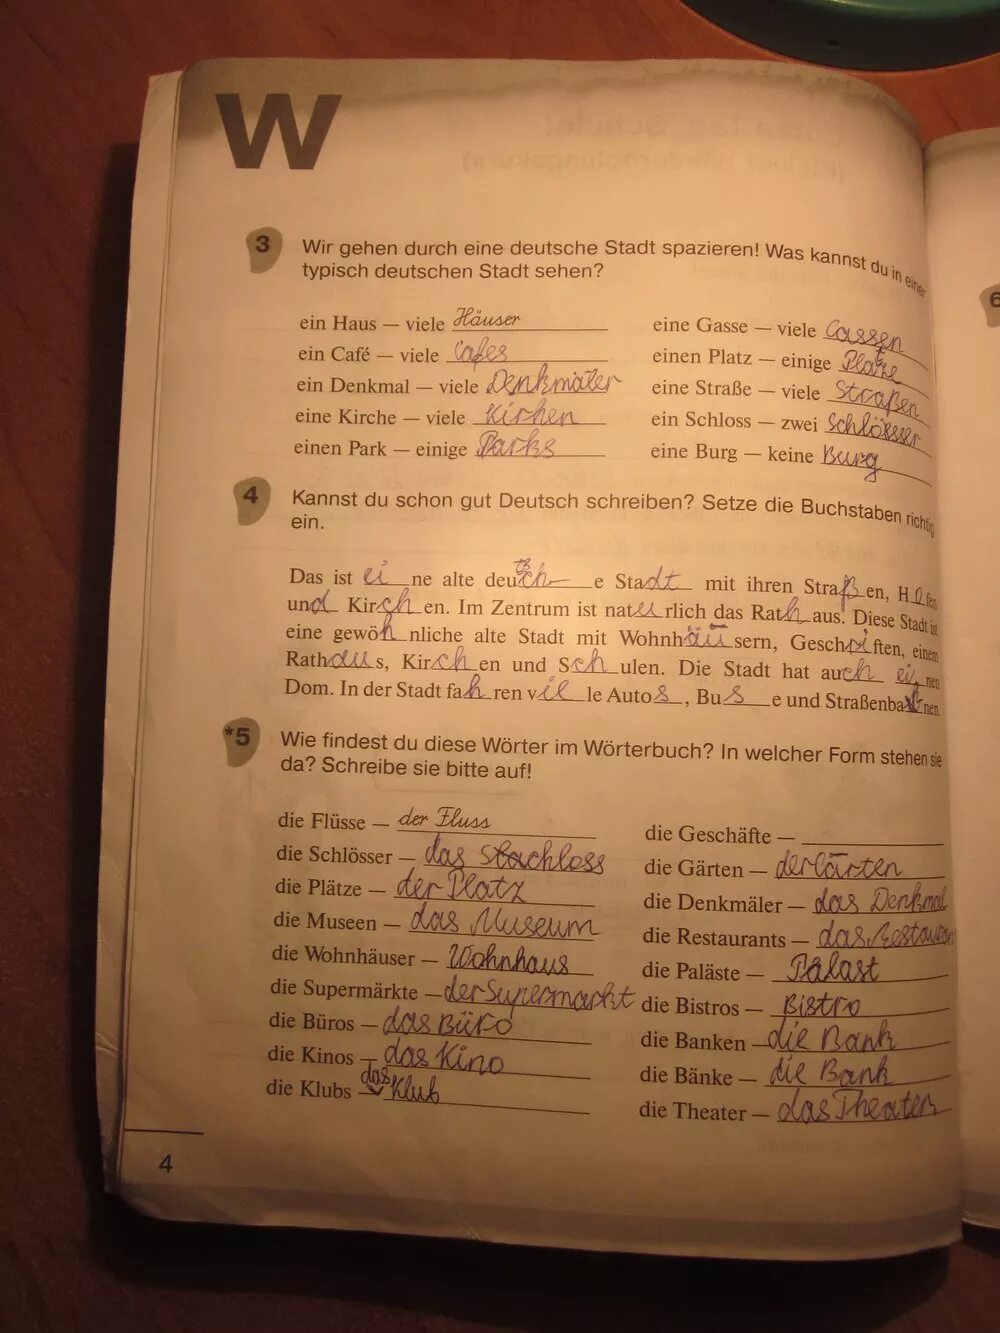 W
3 Wir gehen durch eine deutsche Stadt spazieren! Was kannst du in einer
typisch deutschen Stadt sehen?
ein Haus — viele Häuser
ein Café — viele Cafes
ein Denkmal — viele Denkmäler
eine Kirche — viele Kirhen
einen Park — einige Parks
eine Gasse — viele Gassen
einen Platz — einige Platze
eine Straße — viele Straßen
ein Schloss — zwei Schlösser
eine Burg — keine Burg
4 Kannst du schon gut Deutsch schreiben? Setze die Buchstaben richtig
ein.
Das ist ei ne alte deutsch e Stadt mit ihren Straßen, Höfen
und Kirchen. Im Zentrum ist naturlich das Rathaus. Diese Stadt ist
eine gewöhnliche alte Stadt mit Wohnhäusern, Geschriften, einem
Rathaus, Kirchen und Schulen. Die Stadt hat auch ei nen
Dom. In der Stadt fahren viele Autos, Bus e und Straßenbahnen.
*5 Wie findest du diese Wörter im Wörterbuch? In welcher Form stehen sie
da? Schreibe sie bitte auf!
die Flüsse — der Fluss
die Schlösser — das Schloss
die Plätze — der Platz
die Museen — das Museum
die Wohnhäuser — Wohnhaus
die Supermärkte — der Supermarkt
die Büros — das Büro
die Kinos — das Kino
die Klubs — das Klub
die Geschäfte —
die Gärten — der Gärten
die Denkmäler — das Denkmal
die Restaurants — das Restauran
die Paläste — Pälast
die Bistros — Bistro
die Banken — die Bank
die Bänke — die Bank
die Theater — das Theater
4
6